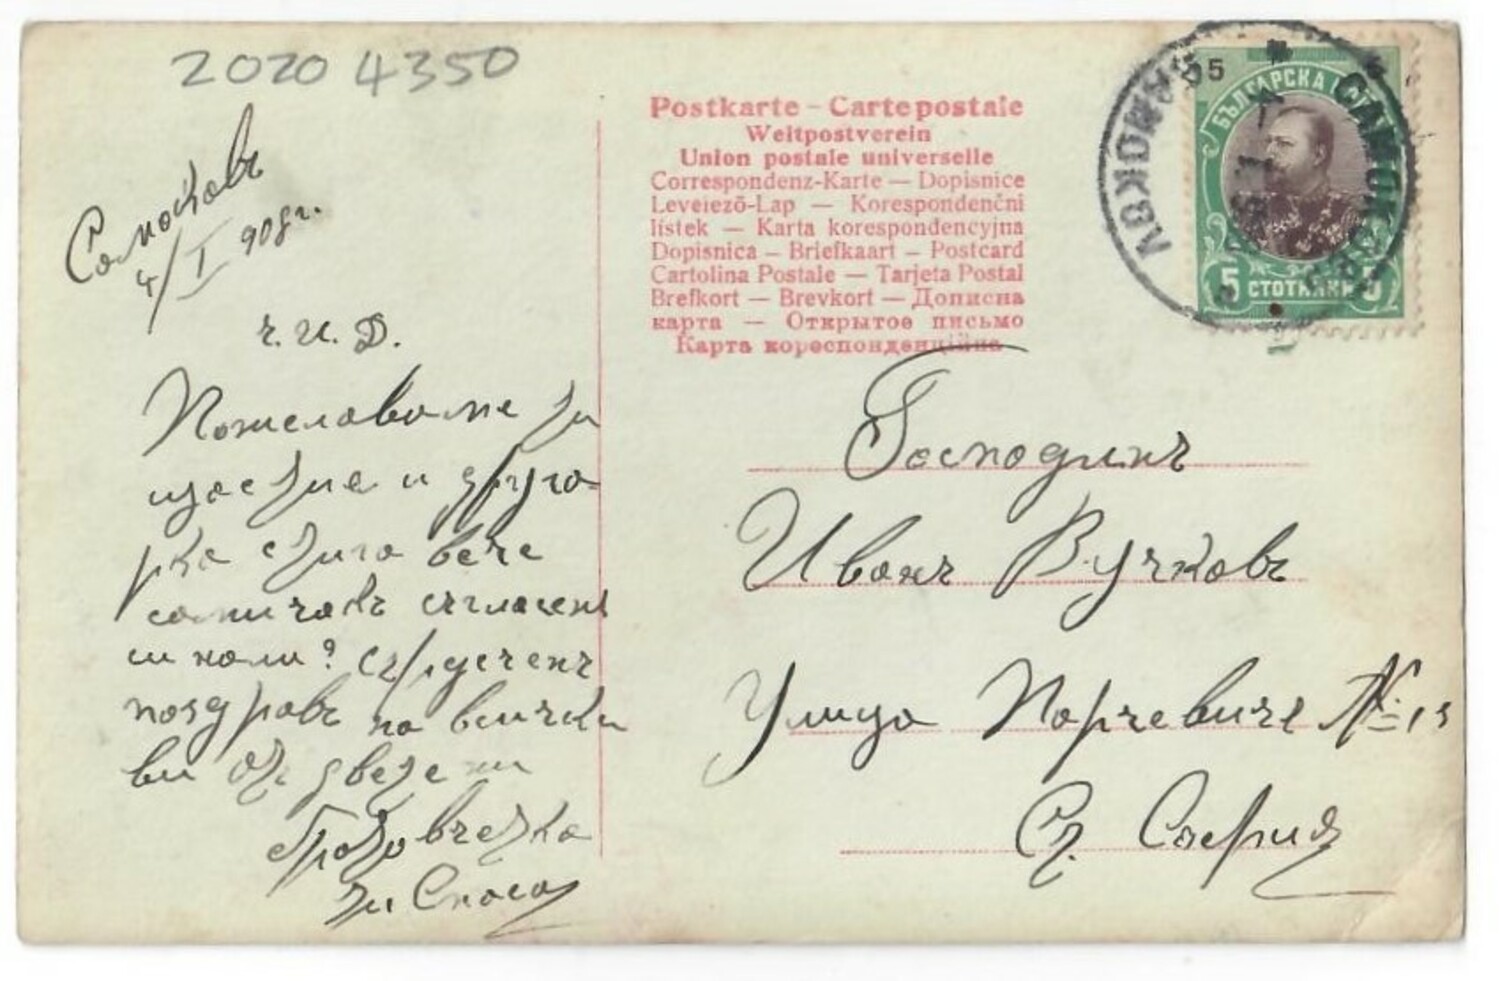 2020 4350
Самоковъ
4/I 908 г.
ч. И. Д.
Пожелаваме ти
щастие и друга-
рка стига вече
самичакъ съгласенъ
си нали? сърдеченъ
поздравъ на всички
ви отъ двете ни
Спаса
Postkarte – Carte postale
Weltpostverein
Union postale universelle
Correspondenz-Karte — Dopisnice
Levelező-Lap — Korespondenční
lístek — Karta korespondencyjna
Dopisnica — Briefkaart — Postcard
Cartolina Postale — Tarjeta Postal
Brefkort — Brevkort — Дописна
карта — Открытое письмо
Карта кореспонденційна
5
БЪЛГАРСКА
5 СТОТИНКИ 5
САМОКОВЪ
SAMOKOV
Господинъ
Иванъ Вучковъ
Улица Парчевичъ № 15
Ст. София